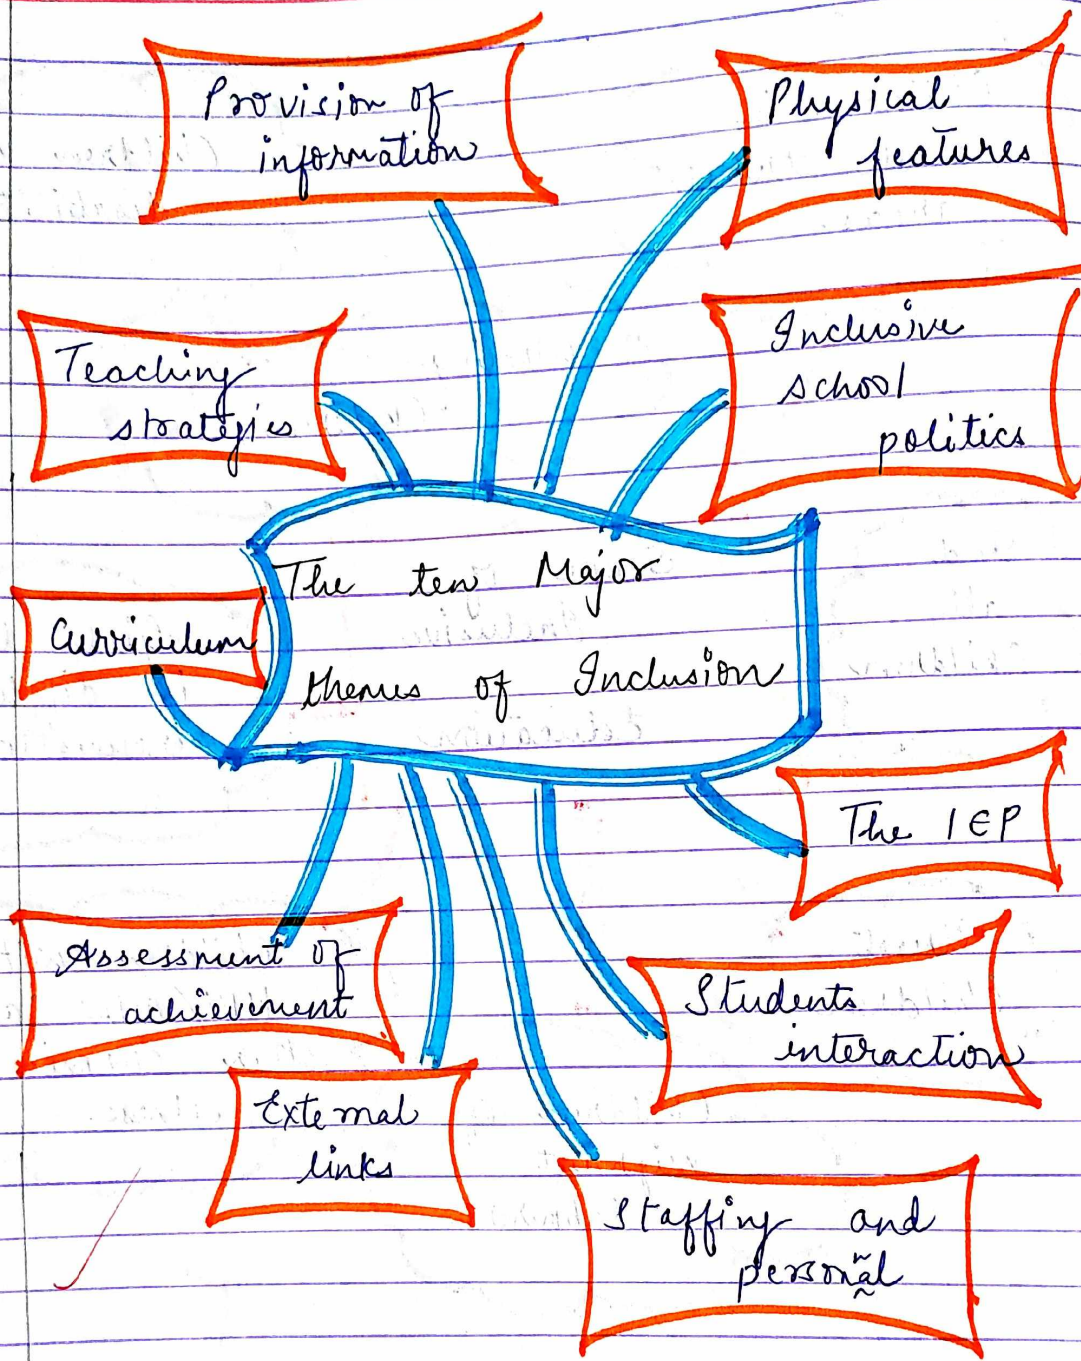 Provision of
information
Physical
features
Teaching
strategies
Inclusive
school
politics
The ten Major
themes of Inclusion
Curriculum
The IEP
Assessment of
achievement
Students
interaction
External
links
Staffing and
personal